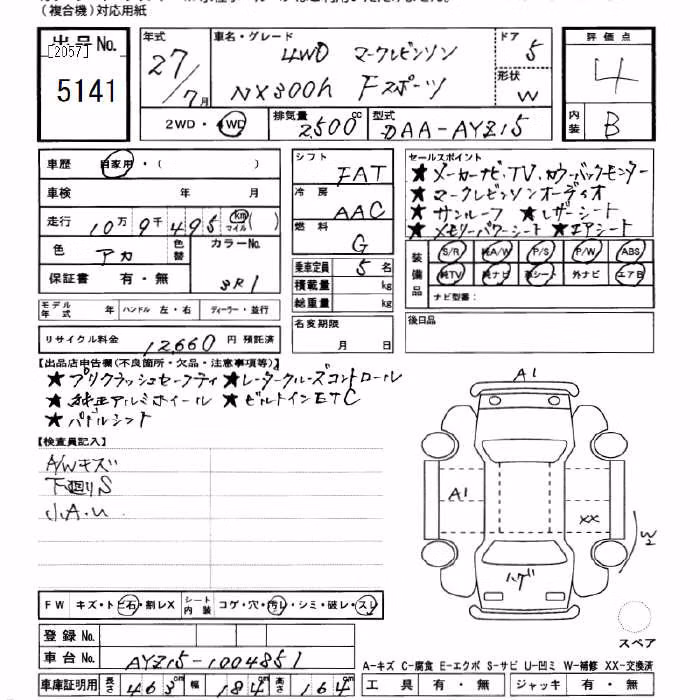 (複合機)対応用紙
出品No.
[2057]
5141
年式
27/7月
車名・グレード
4WD マークレビンソン
NX300h Fスポーツ
ドア
5
形状
W
評価点
4
内装
B
2WD・4WD
排気量
2,500cc
型式
DAA-AYZ15
車歴 自家用・( )
車検 年 月
走行 10万9千495 km マイル( )
色 アカ
色替
カラーNo.
3R1
保証書 有・無
シフト
FAT
冷房
AAC
燃料
G
乗車定員 5名
積載量 kg
総重量 kg
セールスポイント
★メーカーナビ、TV、カラーバックモニター
★マークレビンソンオーディオ
★サンルーフ ★レザーシート
★メモリーパワーシート ★エアシート
装備品
S/R 純A/W P/S P/W ABS
純TV 純ナビ 革シート 外ナビ エアB
ナビ型番:
モデル年式 年 ハンドル 左・右 ディーラー・並行
リサイクル料金 12,660 円 預託済
名変期限
月 日
後日品
【出品店申告欄(不良箇所・欠品・注意事項等)】
★プリクラッシュセーフティ ★レーダークルーズコントロール
★純正アルミホイール ★ビルトインETC
★パドルシフト
【検査員記入】
A/Wキズ
下廻りS
小A.U
A1
A1
XX
W2
ハゲ
スペア
FW キズ・トビ石・割レX
シート内装 コゲ・穴・汚レ・シミ・破レ・スレ
登録No.
車台No. AYZ15-1004851
車庫証明用 長さ 463cm 幅 184cm 高さ 164cm
A-キズ C-腐食 E-エクボ S-サビ U-凹ミ W-補修 XX-交換済
工具 有・無 ジャッキ 有・無